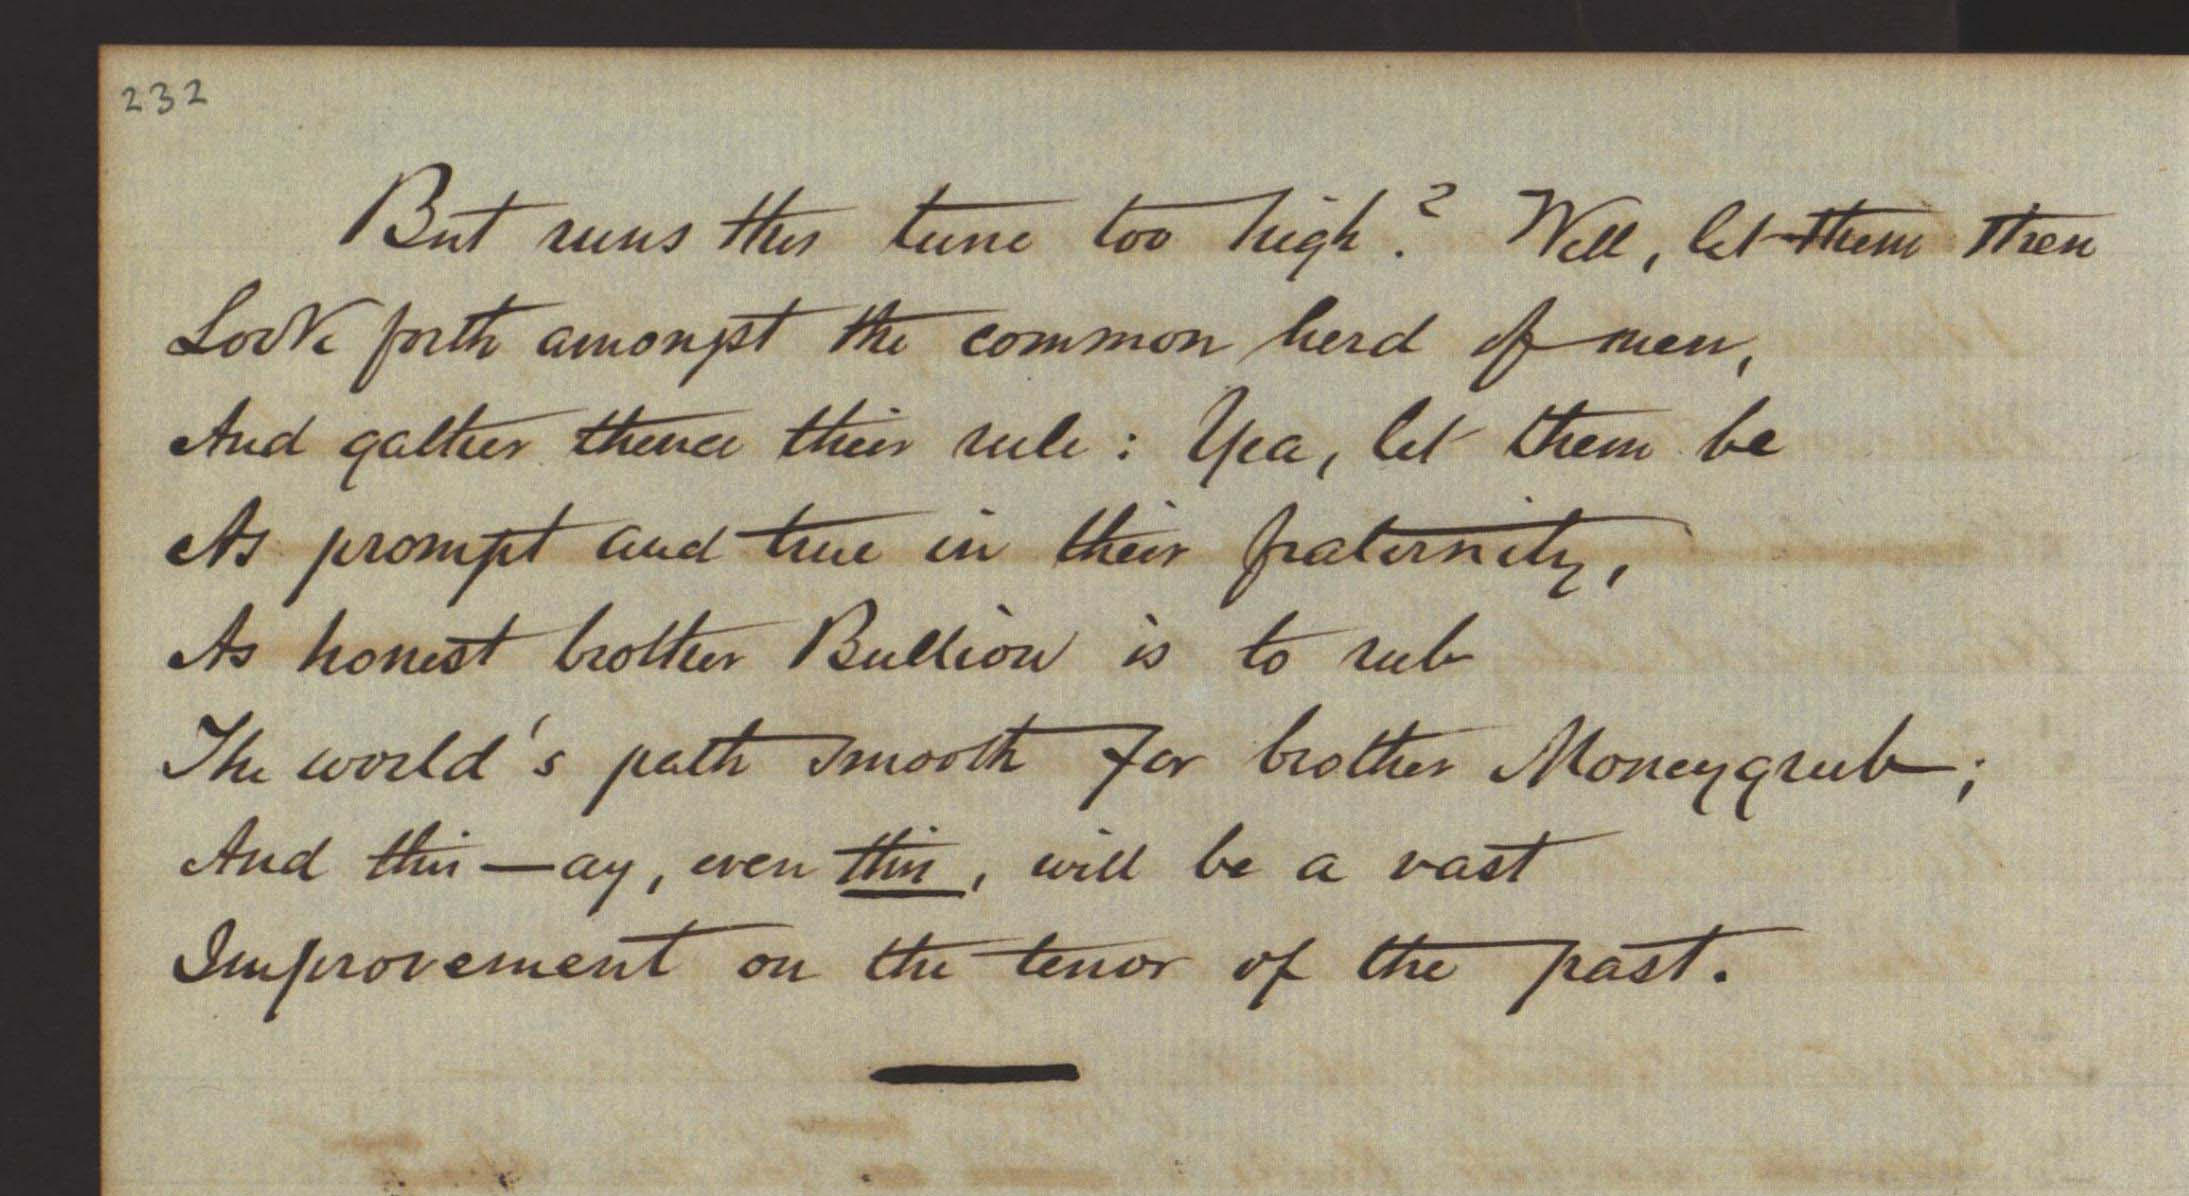 232
But runs this tune too high? Well, let them then
Look forth amongst the common herd of men,
And gather thence their rule: Yea, let them be
As prompt and true in their fraternity,
As honest brother Bullion is to rub
The world's path smooth for brother Moneygrub;
And this—ay, even this, will be a vast
Improvement on the tenor of the past.